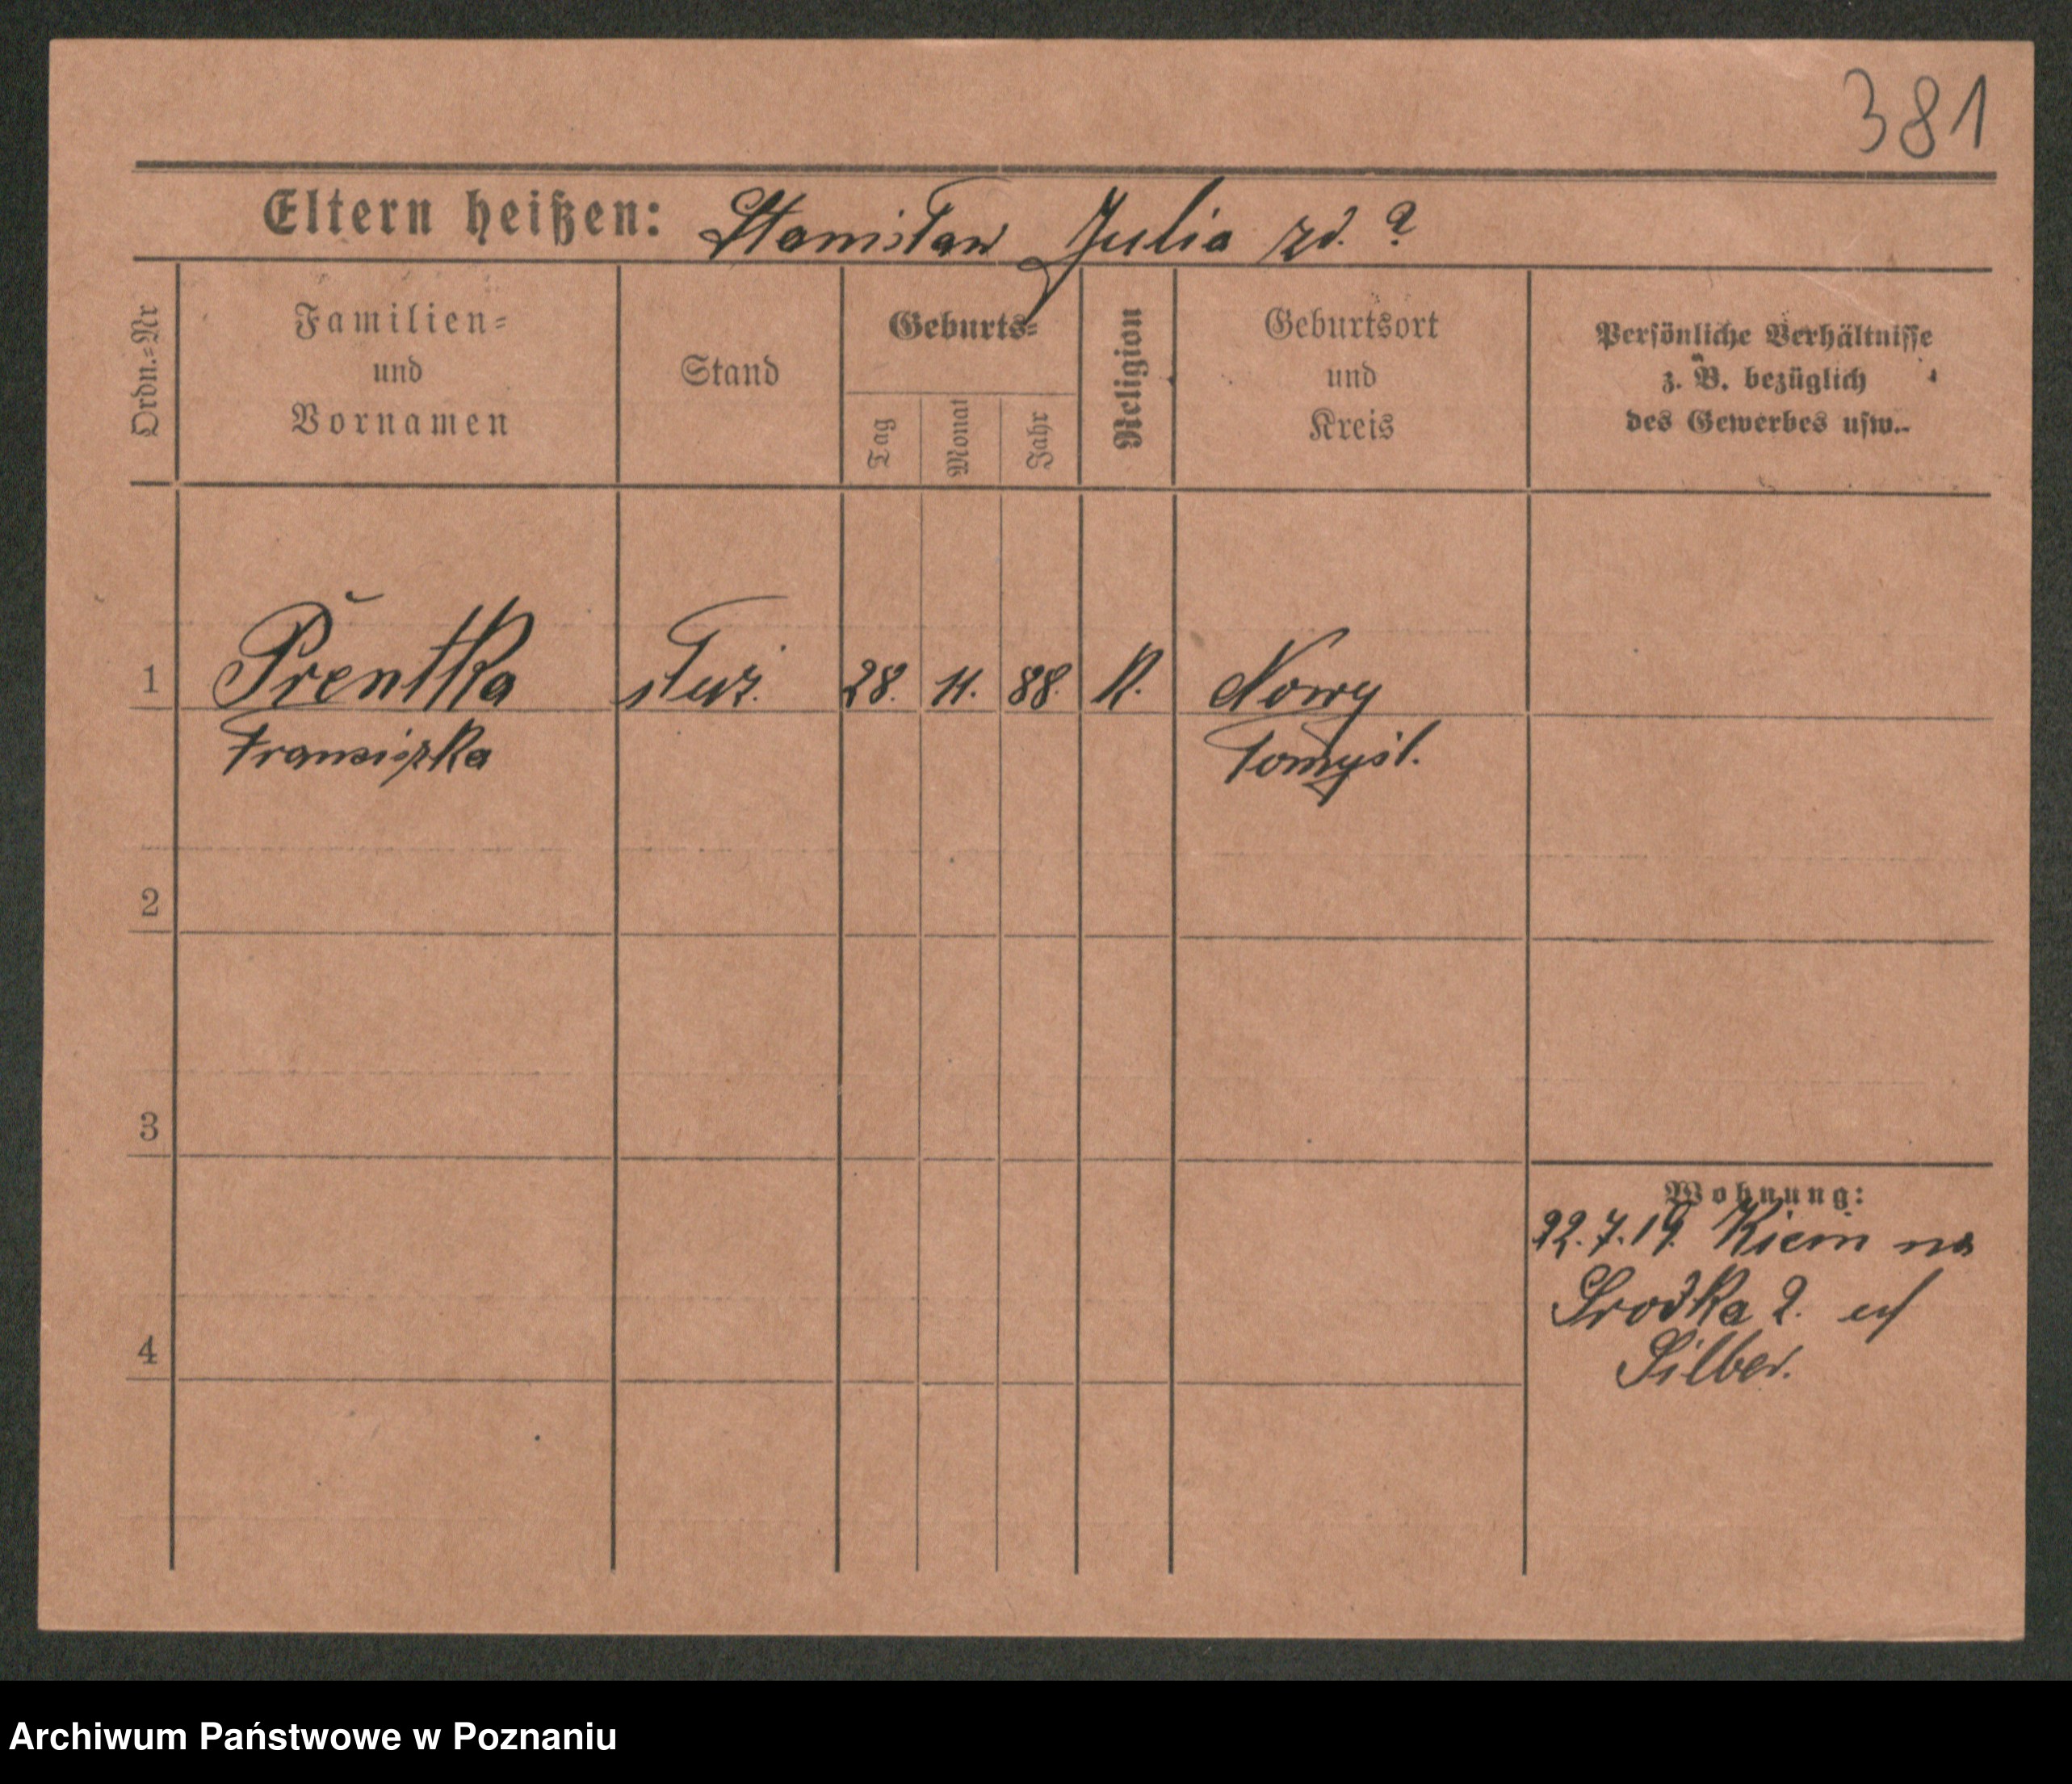 381
Eltern heißen: Stanisław Julia zd. ?
Ordn.=Nr
Familien=
und
Vornamen
Stand
Geburts=
Tag
Monat
Jahr
Religion
Geburtsort
und
Kreis
Persönliche Verhältnisse
z. B. bezüglich
des Gewerbes usw.
1 Prentka służ. 28. 11. 88. K. Nowy
Franciszka Tomyśl.
2
3
Wohnung:
22.7.19. na
Srodka 2.
4 Silber.
Archiwum Państwowe w Poznaniu